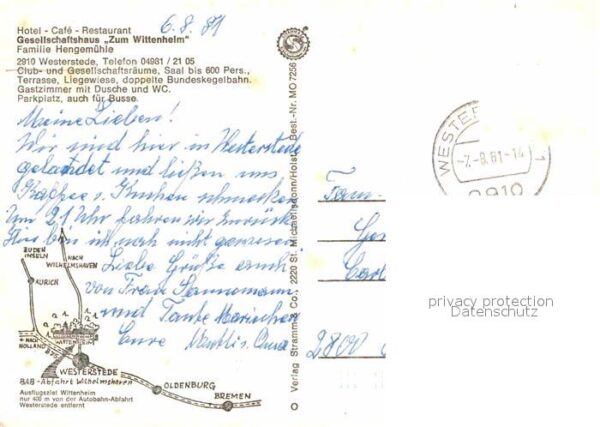 6.8.81
Hotel - Café - Restaurant
Gesellschaftshaus „Zum Wittenheim"
Familie Hengemühle
2910 Westerstede, Telefon 04981 / 21 05
Club- und Gesellschaftsräume, Saal bis 600 Pers.,
Terrasse, Liegewiese, doppelte Bundeskegelbahn.
Gastzimmer mit Dusche und WC.
Parkplatz, auch für Busse.
Meine Lieben!
Wir sind hier in Westerstede
gelandet und ließen uns
Kaffee u. Kuchen schmecken
Um 21 Uhr fahren wir zurück.
Hier bin ich noch nicht gewesen
Liebe Grüße auch
von Frau
und Tante Mariechen
Eure Oma
ZU DEN
INSELN
NACH
WILHELMSHAVEN
AURICH
NACH
HOLLAND
WITTENHEIM
WESTERSTEDE
BAB-Abfahrt Wilhelmshaven
OLDENBURG
BREMEN
Ausflugsziel Wittenheim
nur 400 m von der Autobahn-Abfahrt
Westerstede entfernt
Verlag Strammer & Co., 2220 St. Michaelisdonn/Holst. Best.-Nr. MO 7256
WESTER
-7.-8.81-14
1
2910
Fam.
2800
privacy protection
Datenschutz